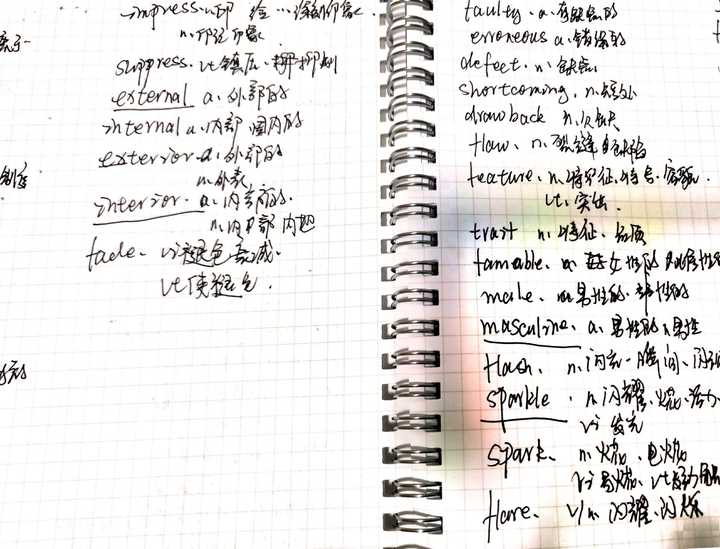 impress. vt.印 给…深刻印象.
n.印记 印象
suppress. vt.镇压.抑制
external a.外部的
internal a.内部 国内的
exterior. a.外部的
n.外表
interior. a.内部的.
n.内部 内地
fade. vi褪色 衰减.
vt.使褪色.
faulty. a.有缺点的
erroneous a.错误的
defect. n.缺点
shortcoming. n.短处
drawback n.欠缺
flaw. n.裂缝 缺陷
feature. n.特征.特写.容貌.
vt.突出.
trait n.特征.品质
female. 女性的
male. 男性的.雄性的
masculine. a.男性的 n.男性
flash. n.闪光 一瞬间.
sparkle. n.闪耀.火花.活力
vi 发光
spark. n.火花.电火花
vi
flare. v/n.闪耀.闪烁